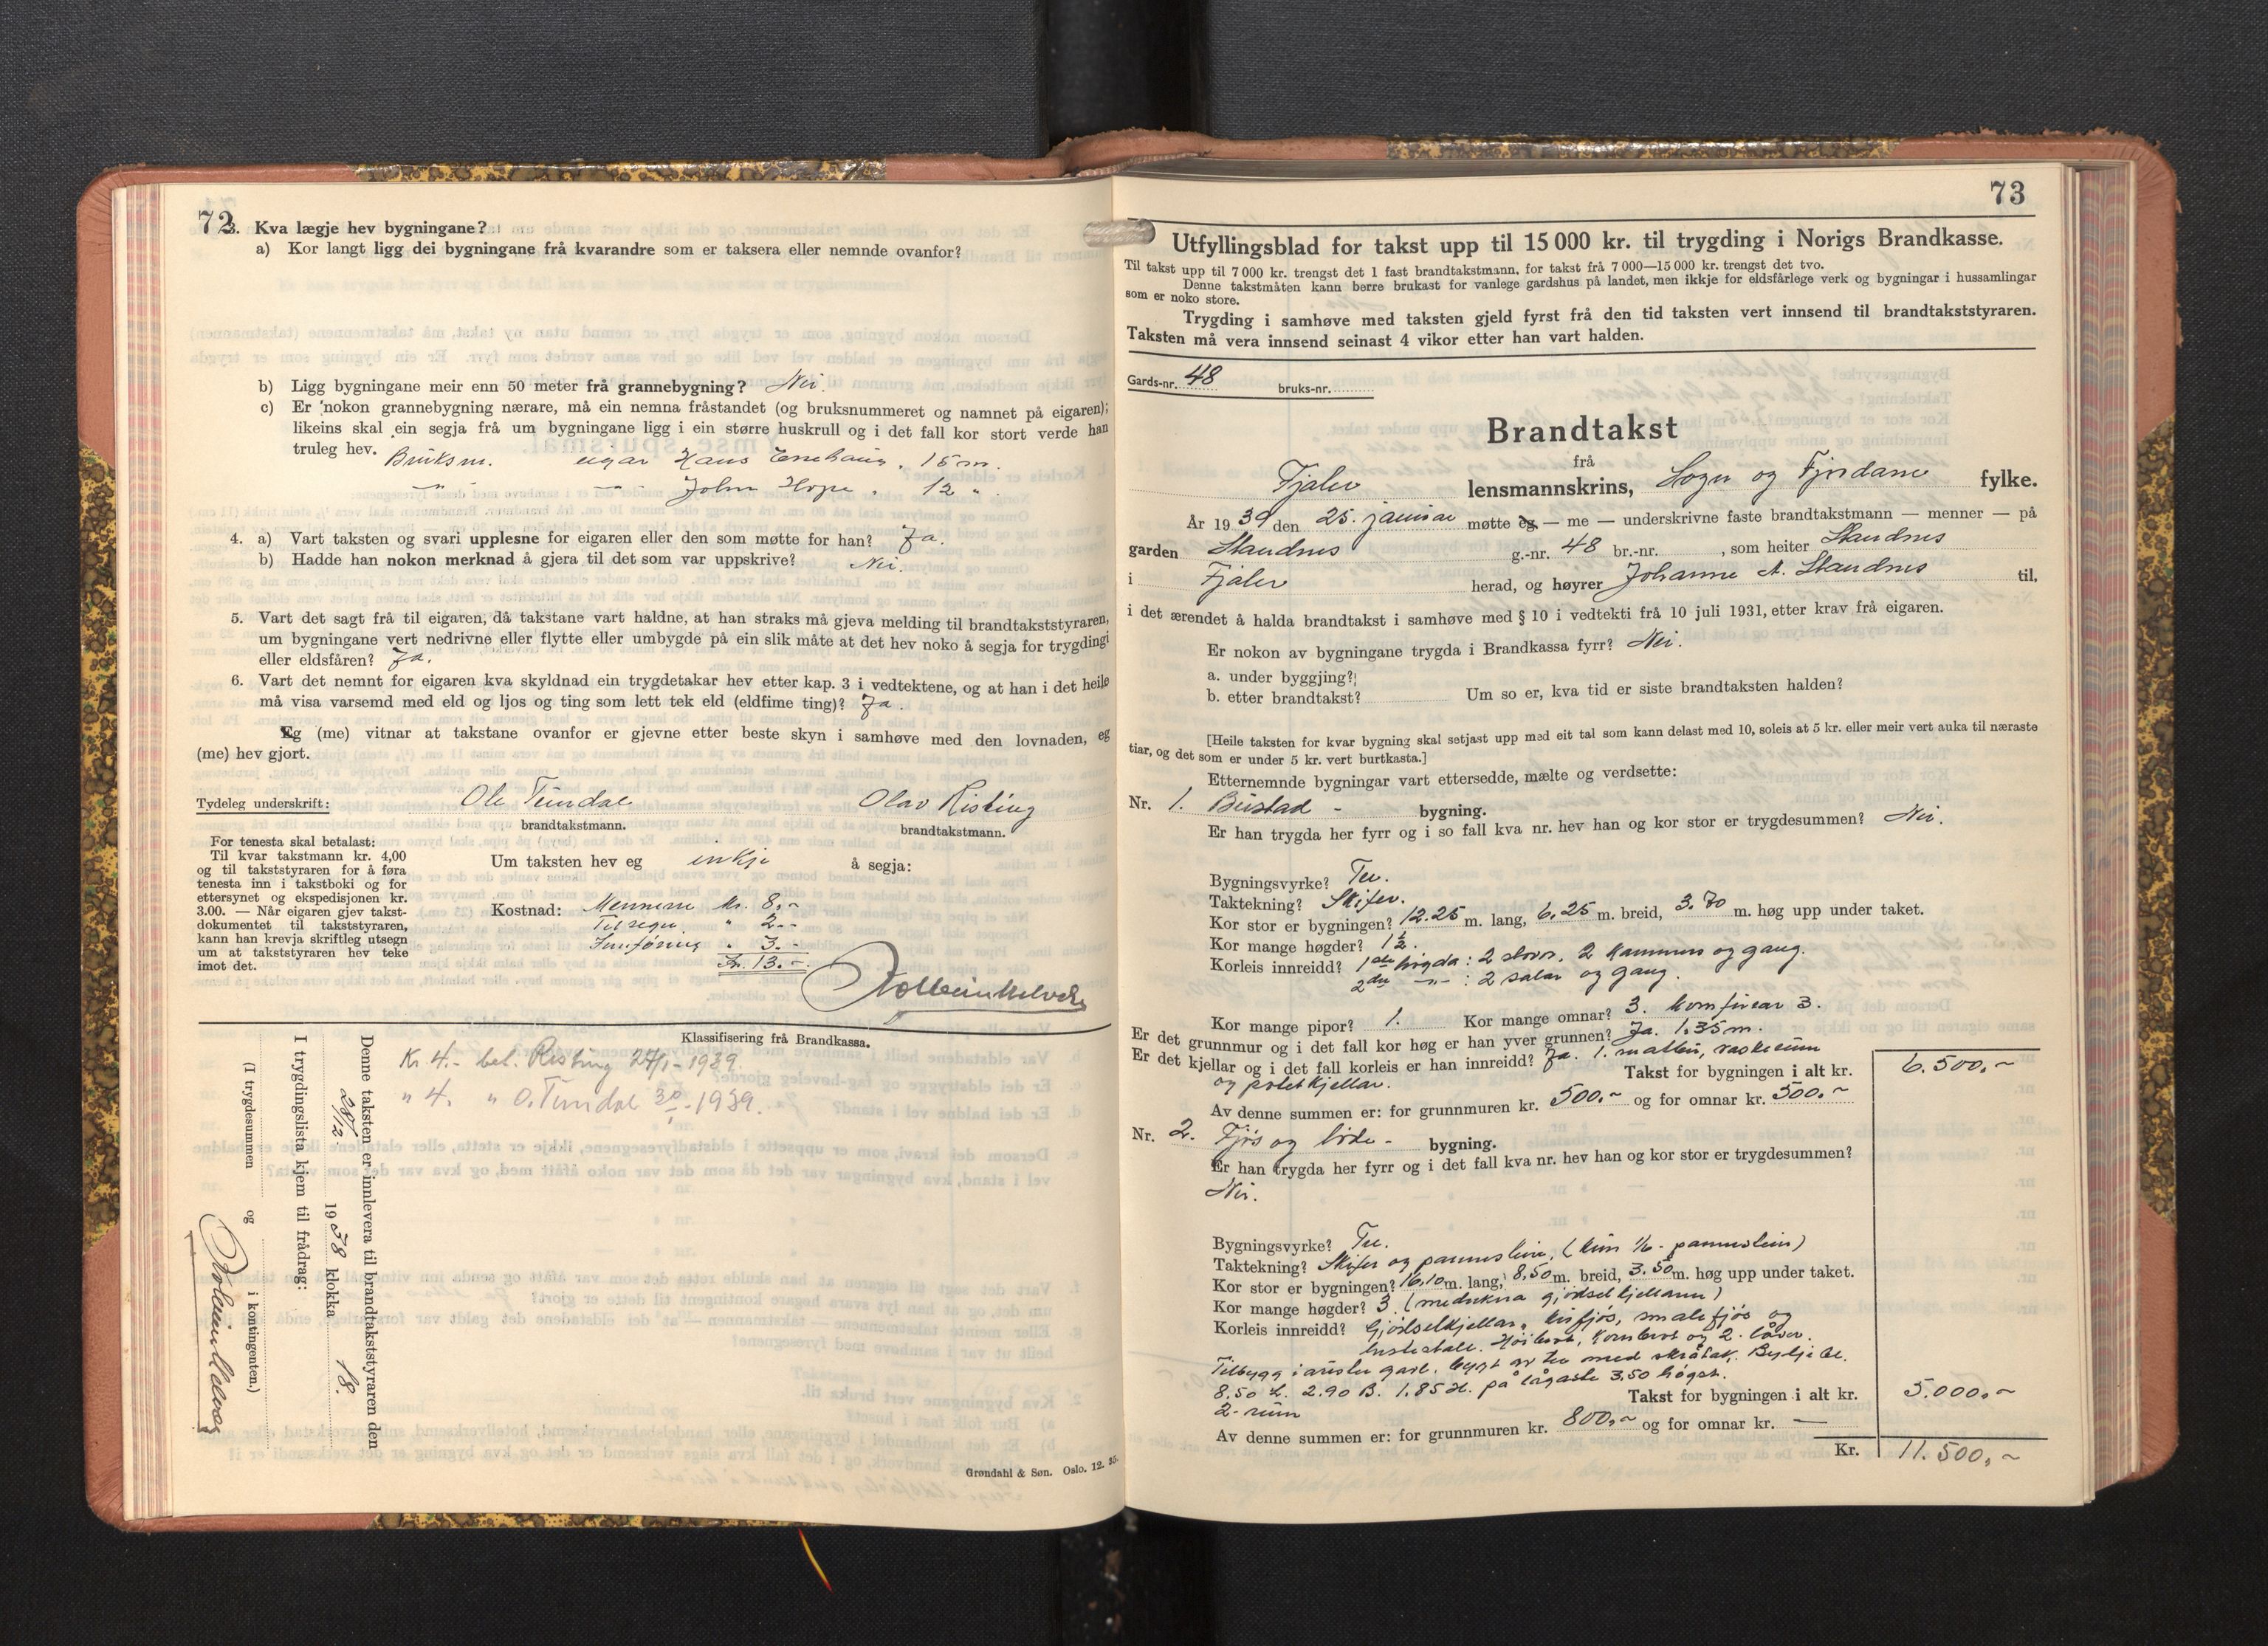 72
3. Kva lægje hev bygningane?
a) Kor langt ligg dei bygningane frå kvarandre som er taksera eller nemnde ovanfor?
b) Ligg bygningane meir enn 50 meter frå grannebygning? Nei.
c) Er nokon grannebygning nærare, må ein nemna fråstandet (og bruksnummeret og namnet på eigaren);
likeins skal ein segja frå um bygningane ligg i ein større huskrull og i det fall kor stort verde han
truleg hev. Bruksnr. eigar Hans 15 m.
-"- -"- John Hope, 12 "
4. a) Vart taksten og svari upplesne for eigaren eller den som møtte for han? Ja.
b) Hadde han nokon merknad å gjera til det som var uppskrive? Nei.
5. Vart det sagt frå til eigaren, då takstane vart haldne, at han straks må gjeva melding til brandtakststyraren,
um bygningane vert nedrivne eller flytte eller umbygde på ein slik måte at det hev noko å segja for trygdingi
eller eldsfåren? Ja.
6. Vart det nemnt for eigaren kva skyldnad ein trygdetakar hev etter kap. 3 i vedtektene, og at han i det heile
må visa varsemd med eld og ljos og ting som lett tek eld (eldfime ting)? Ja.
Eg (me) vitnar at takstane ovanfor er gjevne etter beste skyn i samhøve med den lovnaden, eg
(me) hev gjort.
Tydeleg underskrift: Ole Tundal Olav Risting
brandtakstmann. brandtakstmann.
For tenesta skal betalast:
Til kvar takstmann kr. 4,00
og til takststyraren for å føra
tenesta inn i takstboki og for
ettersynet og ekspedisjonen kr.
3.00. — Når eigaren gjev takst-
dokumentet til takststyraren,
kann han krevja skriftleg utsegn
um at takststyraren hev teke
imot det.
Um taksten hev eg inkje å segja:
Kostnad: Mennene kr. 8.-
Tilsegn. " 2.-
Innføring " 3.-
Kr. 13.-
Klassifisering frå Brandkassa.
Kr 4.- bet. Risting 27/1-1939.
" 4. " O. Tundal 30/-1939.
Denne taksten er innlevera til brandtakststyraren den
28/12 1938 klokka 18.
I trygdingslista kjem til frådrag:
(I trygdesummen og i kontingenten.)
Grøndahl & Søn. Oslo. 12. 35.
73
Utfyllingsblad for takst upp til 15 000 kr. til trygding i Norigs Brandkasse.
Til takst upp til 7 000 kr. trengst det 1 fast brandtakstmann, for takst frå 7 000—15 000 kr. trengst det tvo.
Denne takstmåten kann berre brukast for vanlege gardshus på landet, men ikkje for eldsfårlege verk og bygningar i hussamlingar
som er noko store.
Trygding i samhøve med taksten gjeld fyrst frå den tid taksten vert innsend til brandtakststyraren.
Taksten må vera innsend seinast 4 vikor etter han vart halden.
Gards-nr. 48 bruks-nr.
Brandtakst
frå
Fjaler lensmannskrins, Sogn og Fjordane fylke.
År 1939 den 25. januar møtte eg — me — underskrivne faste brandtakstmann — menner — på
garden Standnes g.-nr. 48 br.-nr. , som heiter Standnes
i Fjaler herad, og høyrer Johanne A. Standnes til,
i det ærendet å halda brandtakst i samhøve med § 10 i vedtekti frå 10 juli 1931, etter krav frå eigaren.
Er nokon av bygningane trygda i Brandkassa fyrr? Nei.
a. under byggjing?
b. etter brandtakst? Um so er, kva tid er siste brandtaksten halden?
[Heile taksten for kvar bygning skal setjast upp med eit tal som kann delast med 10, soleis at 5 kr. eller meir vert auka til næraste
tiar, og det som er under 5 kr. vert burtkasta.]
Etternemnde bygningar vart ettersedde, mælte og verdsette:
Nr. 1. Bustad - bygning.
Er han trygda her fyrr og i so fall kva nr. hev han og kor stor er trygdesummen? Nei.
Bygningsvyrke? Tre.
Taktekning? Skifer.
Kor stor er bygningen? 12.25 m. lang, 6.25 m. breid, 3.70 m. høg upp under taket.
Kor mange høgder? 1½.
Korleis innreidd? 1ste høgda: 2 stover, 2 kammers og gang.
2dre -"- : 2 salar og gang.
Kor mange pipor? 1. Kor mange omnar? 3. komfyrar 3.
Er det grunnmur og i det fall kor høg er han yver grunnen? Ja. 1.35 m.
Er det kjellar og i det fall korleis er han innreidd? Ja. 1. matbu, vaskerum
og potetkjellar. Takst for bygningen i alt kr. 6.500.-
Av denne summen er: for grunnmuren kr. 500.- og for omnar kr. 500.-
Nr. 2. Fjøs og løde - bygning.
Er han trygda her fyrr og i det fall kva nr. hev han og kor stor er trygdesummen?
Nei.
Bygningsvyrke? Tre.
Taktekning? Skifer og pannestein, (kun 1/6 - pannestein)
Kor stor er bygningen? 16.10 m. lang, 8.50 m. breid, 3.50 m. høg upp under taket.
Kor mange høgder? 3. (medrekna gjødselkjellaren)
Korleis innreidd? Gjødselkjellar, kufjøs, smalefjøs og
hestestall. Høilere, Kornlere og 2. låver.
Tilbygg i austre gavl. bygt av tre med skråtak.
8.50 L. 2.90 B. 1.85 H. på lågaste 3.50 høgst.
2-rum Takst for bygningen i alt kr. 5.000.-
Av denne summen er: for grunnmuren kr. 800.- og for omnar kr. —
Kr. 11.500.-